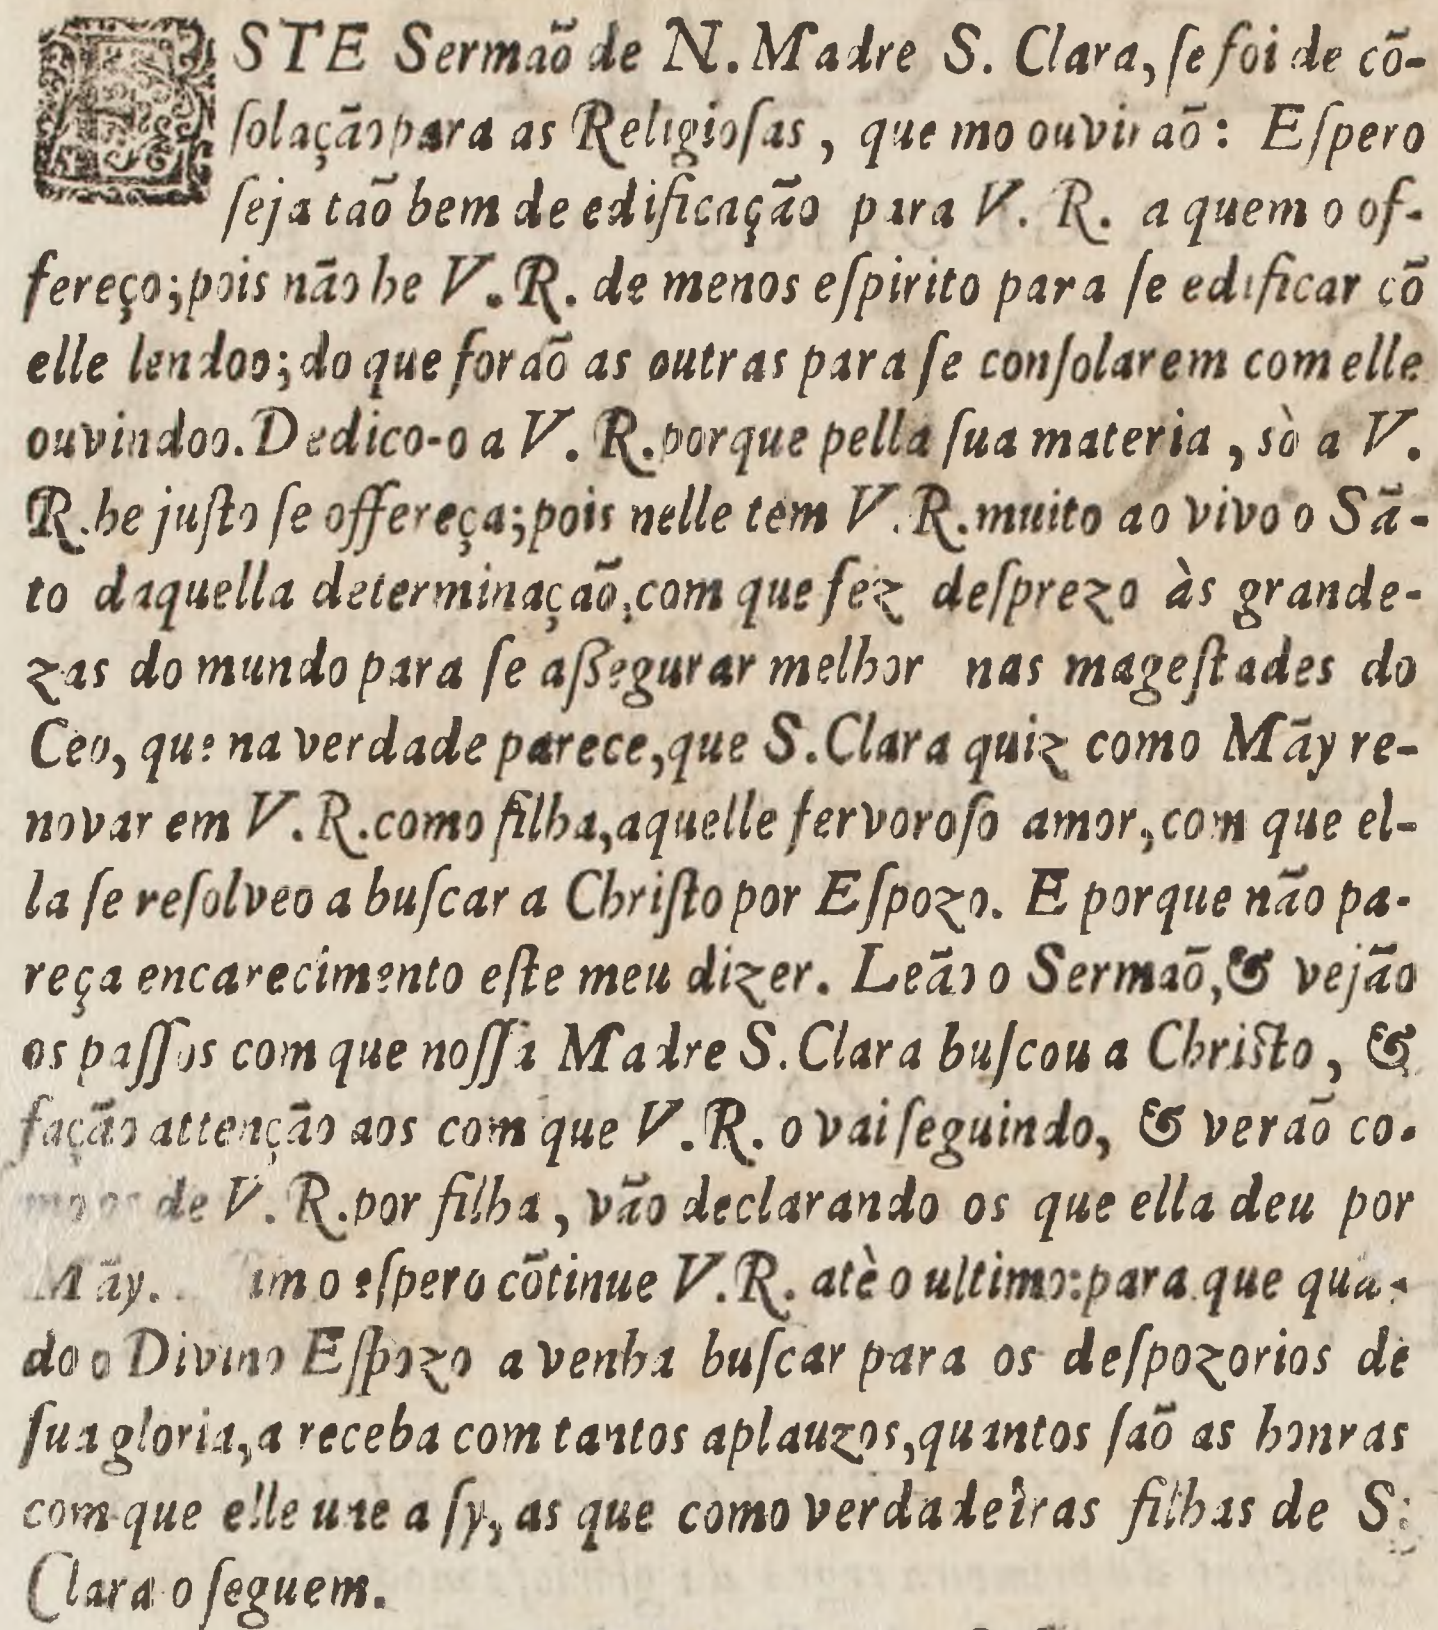 ESTE Sermaõ de N. Madre S. Clara, ſe foi de cõ-
ſolação para as Religioſas, que mo ouviraõ: Eſpero
ſeja taõ bem de edificação para V. R. a quem o of-
fereço; pois não he V. R. de menos eſpirito para ſe edificar cõ
elle lendoo; do que foraõ as outras para ſe conſolarem com elle
ouvindoo. Dedico-o a V. R. porque pella ſua materia, sò a V.
R. he juſto ſe offereça; pois nelle tem V. R. muito ao vivo o Sã-
to daquella determinaçaõ, com que fez deſprezo às grande-
zas do mundo para ſe aſſegurar melhor nas mageſtades do
Ceo, que na verdade parece, que S. Clara quiz como Mãy re-
novar em V. R. como filha, aquelle fervoroſo amor, com que el-
la ſe reſolveo a buſcar a Chriſto por Eſpozo. E porque não pa-
reça encarecimento eſte meu dizer. Leão o Sermaõ, & vejão
os paſſos com que noſſa Madre S. Clara buſcou a Chriſto, &
fação attenção aos com que V. R. o vai ſeguindo, & veraõ co-
mo os de V. R. por filha, vão declarando os que ella deu por
Mãy. im o eſpero cõtinue V. R. atè o ultimo: para que quã-
do o Divino Eſpozo a venha buſcar para os deſpozorios de
ſua gloria, a receba com tantos aplauzos, quantos ſaõ as honras
com que elle une a ſy, as que como verdadeiras filhas de S.
Clara o ſeguem.